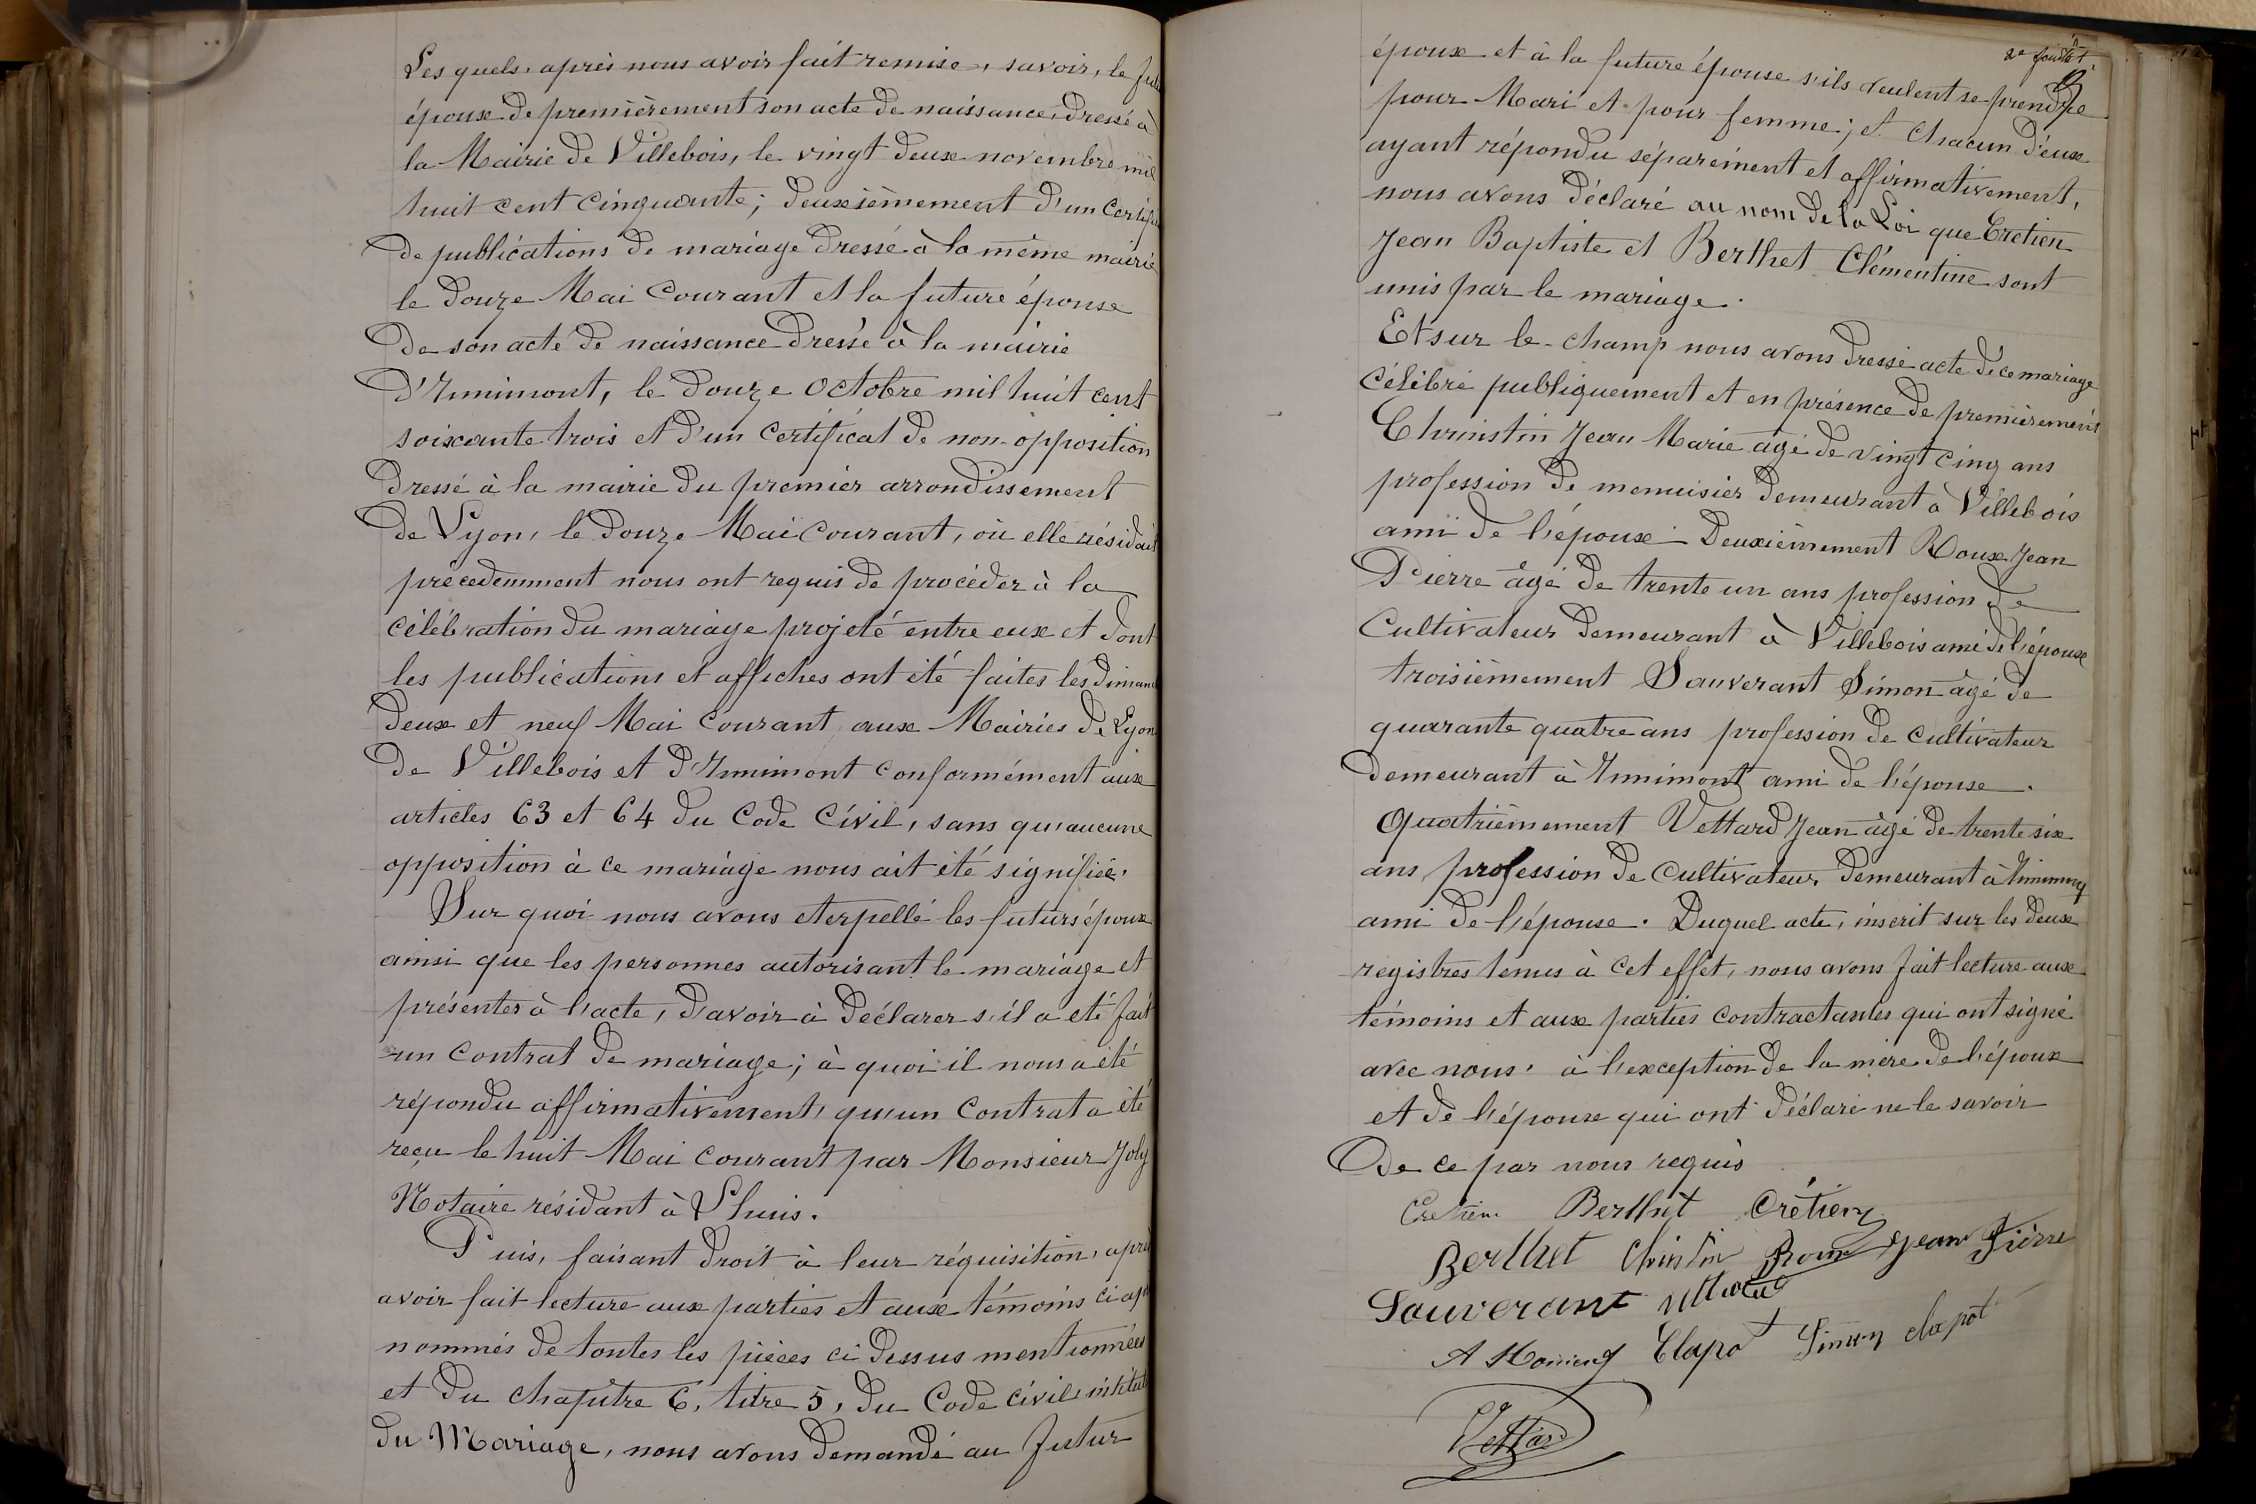 Les quels, après nous avoir fait remise, savoir, le fut
époux de premièrement son acte de naissance, dressé à
la Mairie de Villebois, le vingt deux novembre mil
huit cent cinquante; deuxièmement d'un Certifi
de publications de mariage dressé à la même mairie
le douze Mai courant et la future épouse
de son acte de naissance dressé à la mairie
d'Innimont, le douze Octobre mil huit cent
soixante trois et d'un Certificat de non-opposition
dressé à la mairie du premier arrondissement
de Lyon, le douze Mai courant, où elle résidait
précedemment nous ont requis de procéder à la
célébration du mariage projeté entre eux et dont
les publications et affiches ont été faites les diman
deux et neuf Mai courant aux Mairies de Lyon
de Villebois et d'Innimont conformément aux
articles 63 et 64 du Code Civil, sans qu'aucune
opposition à ce mariage nous ait été signifiée.
Sur quoi nous avons eterpellé les futurs époux
ainsi que les personnes autorisant le mariage et
présentes à l'acte, d'avoir à déclarer s'il a été fait
un contrat de mariage; à quoi il nous a été
répondu affirmativement, qu'un Contrat a été
reçu le huit Mai courant par Monsieur Joly
Notaire résidant à Lhuis.
Puis, faisant droit à leur réquisition, après
avoir fait lecture aux parties et aux témoins ci ap
nommés de toutes les pièces ci dessus mentionnées
et du chapitre 6, titre 5, du Code civil, intitul
du Mariage, nous avons demandé au futur
2e feuillet
époux et à la future épouse s'ils veulent se prendre
pour Mari et pour femme; et chacun d'eux
ayant répondu séparément et affirmativement,
nous avons déclaré au nom de la Loi que Cretien
Jean Baptiste et Berthet Clémentine sont
unis par le mariage.
Et sur le-champ nous avons dressé acte de ce mariage
célébré publiquement et en présence de premièrement
Chrinstin Jean Marie âgé de vingt cinq ans
profession de menuisier demeurant à Villebois
ami de l'époux - Deuxièmement Roux Jean
Pierre âgé de trente un ans profession de
Cultivateur demeurant à Villebois ami de l'époux
troisièmement Sauverant Simon âgé de
quarante quatre ans profession de cultivateur
demeurant à Innimont ami de l'épouse.
Quatrièmement Vettard Jean âgé de trente six
ans profession de Cultivateur demeurant à Innimont
ami de l'épouse. Duquel acte, inscrit sur les deux
registres tenus à cet effet, nous avons fait lecture aux
témoins et aux parties contractantes qui ont signé
avec nous. à l'exception de la mère de l'époux
et de l'épouse qui ont déclaré ne le savoir
De ce par nous requis
Cretien Berthet Crétien
Berthet Chrinstin Roux Jean Pierre
Sauverant
Clapot Simon clapot
Vettard